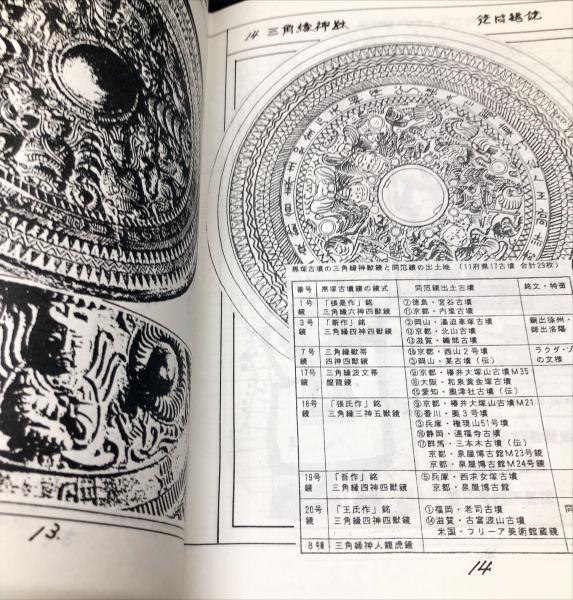 14 三角縁神獣
黒塚古墳の三角縁神獣鏡と同范鏡の出土地 (11府県17古墳 合計29枚)
番号 黒塚古墳鏡の鏡式 同范鏡出土古墳 銘文・特徴
1号鏡 「張是作」銘 三角縁六神四獣鏡 ⑦徳島・宮谷古墳
⑪京都・内里古墳
3号鏡 「新作」銘 三角縁四神四獣鏡 ②岡山・湯迫車塚古墳 銅出徐州・
⑫京都・北山古墳 師出洛陽
⑬滋賀・織部古墳
7号鏡 三角縁獣帯 四神四獣鏡 ⑩京都・西山2号墳 ラクダ・ゾ
③岡山・某古墳(伝) の文様
17号鏡 三角縁波文帯 盤龍鏡 ⑨京都・椿井大塚山古墳M35
⑧大阪・和泉黄金塚古墳
⑮愛知・奥津社古墳(伝)
18号鏡 「張氏作」銘 三角縁三神五獣鏡 ⑨京都・椿井大塚山古墳M21
⑥香川・奥3号墳
③兵庫・権現山51号墳
⑯静岡・連福寺古墳
⑰群馬・三本木古墳(伝)
京都・泉屋博古館M23号鏡
京都・泉屋博古館M24号鏡
19号鏡 「吾作」銘 三角縁四神四獣鏡 ⑤兵庫・西求女塚古墳
京都・泉屋博古館
20号鏡 「王氏作」銘 三角縁四神四獣鏡 ①福岡・老司古墳
⑭滋賀・古富波山古墳
米国・フリーア美術館蔵鏡
8号鏡 三角縁神人龍虎鏡
13.
14